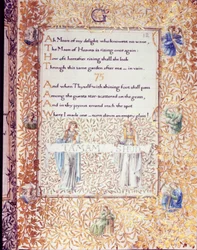 Ah Moon of my delight who knowst no wane,
The Moon of Heaven is rising once again:
How oft hereafter rising shall she look
Through this same garden after me — in vain.
75
And when Thyself with shining foot shall pass
Among the guests star-scattered on the grass,
And in thy joyous errand reach the spot
Where I made one — turn down an empty glass!